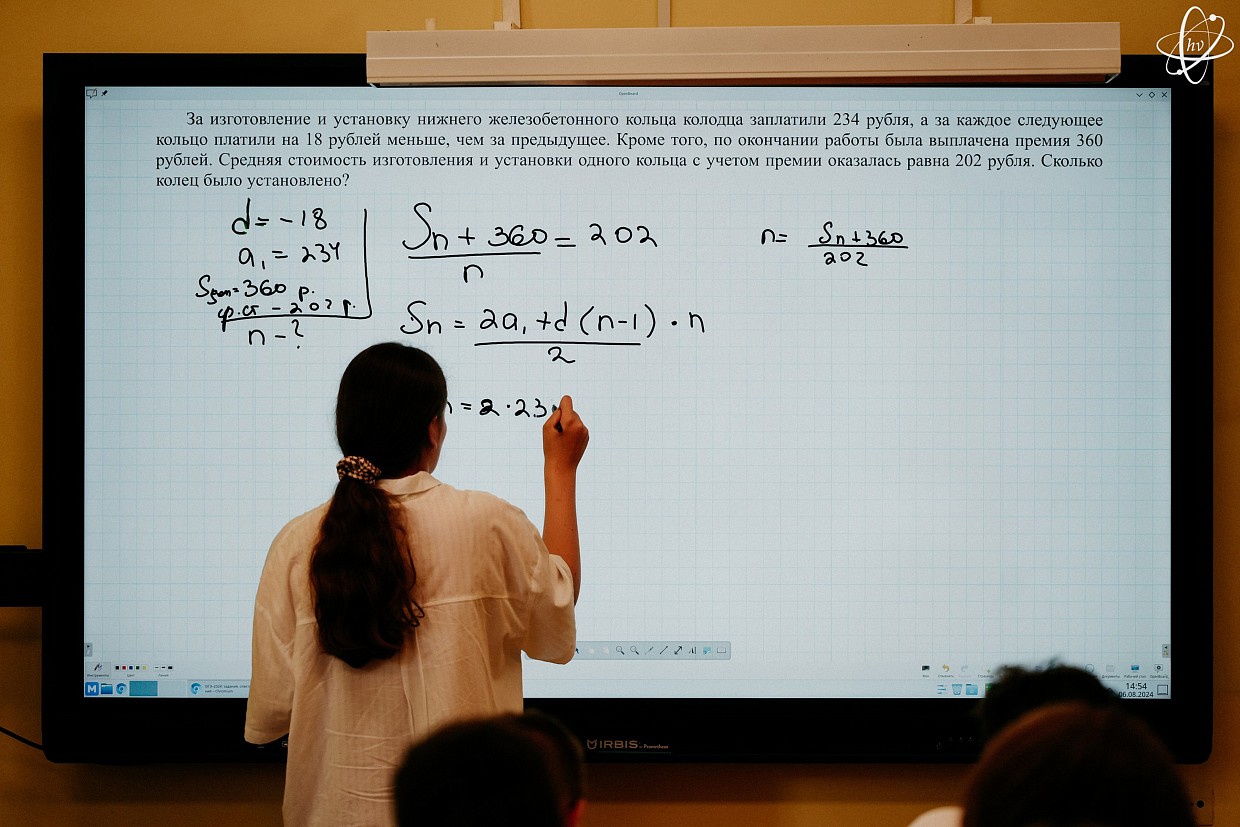 hν
OpenBoard
За изготовление и установку нижнего железобетонного кольца колодца заплатили 234 рубля, а за каждое следующее
кольцо платили на 18 рублей меньше, чем за предыдущее. Кроме того, по окончании работы была выплачена премия 360
рублей. Средняя стоимость изготовления и установки одного кольца с учетом премии оказалась равна 202 рубля. Сколько
колец было установлено?
d = -18
a₁ = 234
Sдоп = 360 р.
ср.ст - 202 р.
n - ?
Sn + 360 = 202
n
Sn = 2a₁ + d (n-1) · n
2
= 2 · 23
n = Sn + 360
202
14:54
06.08.2024
IRBIS by Promethean